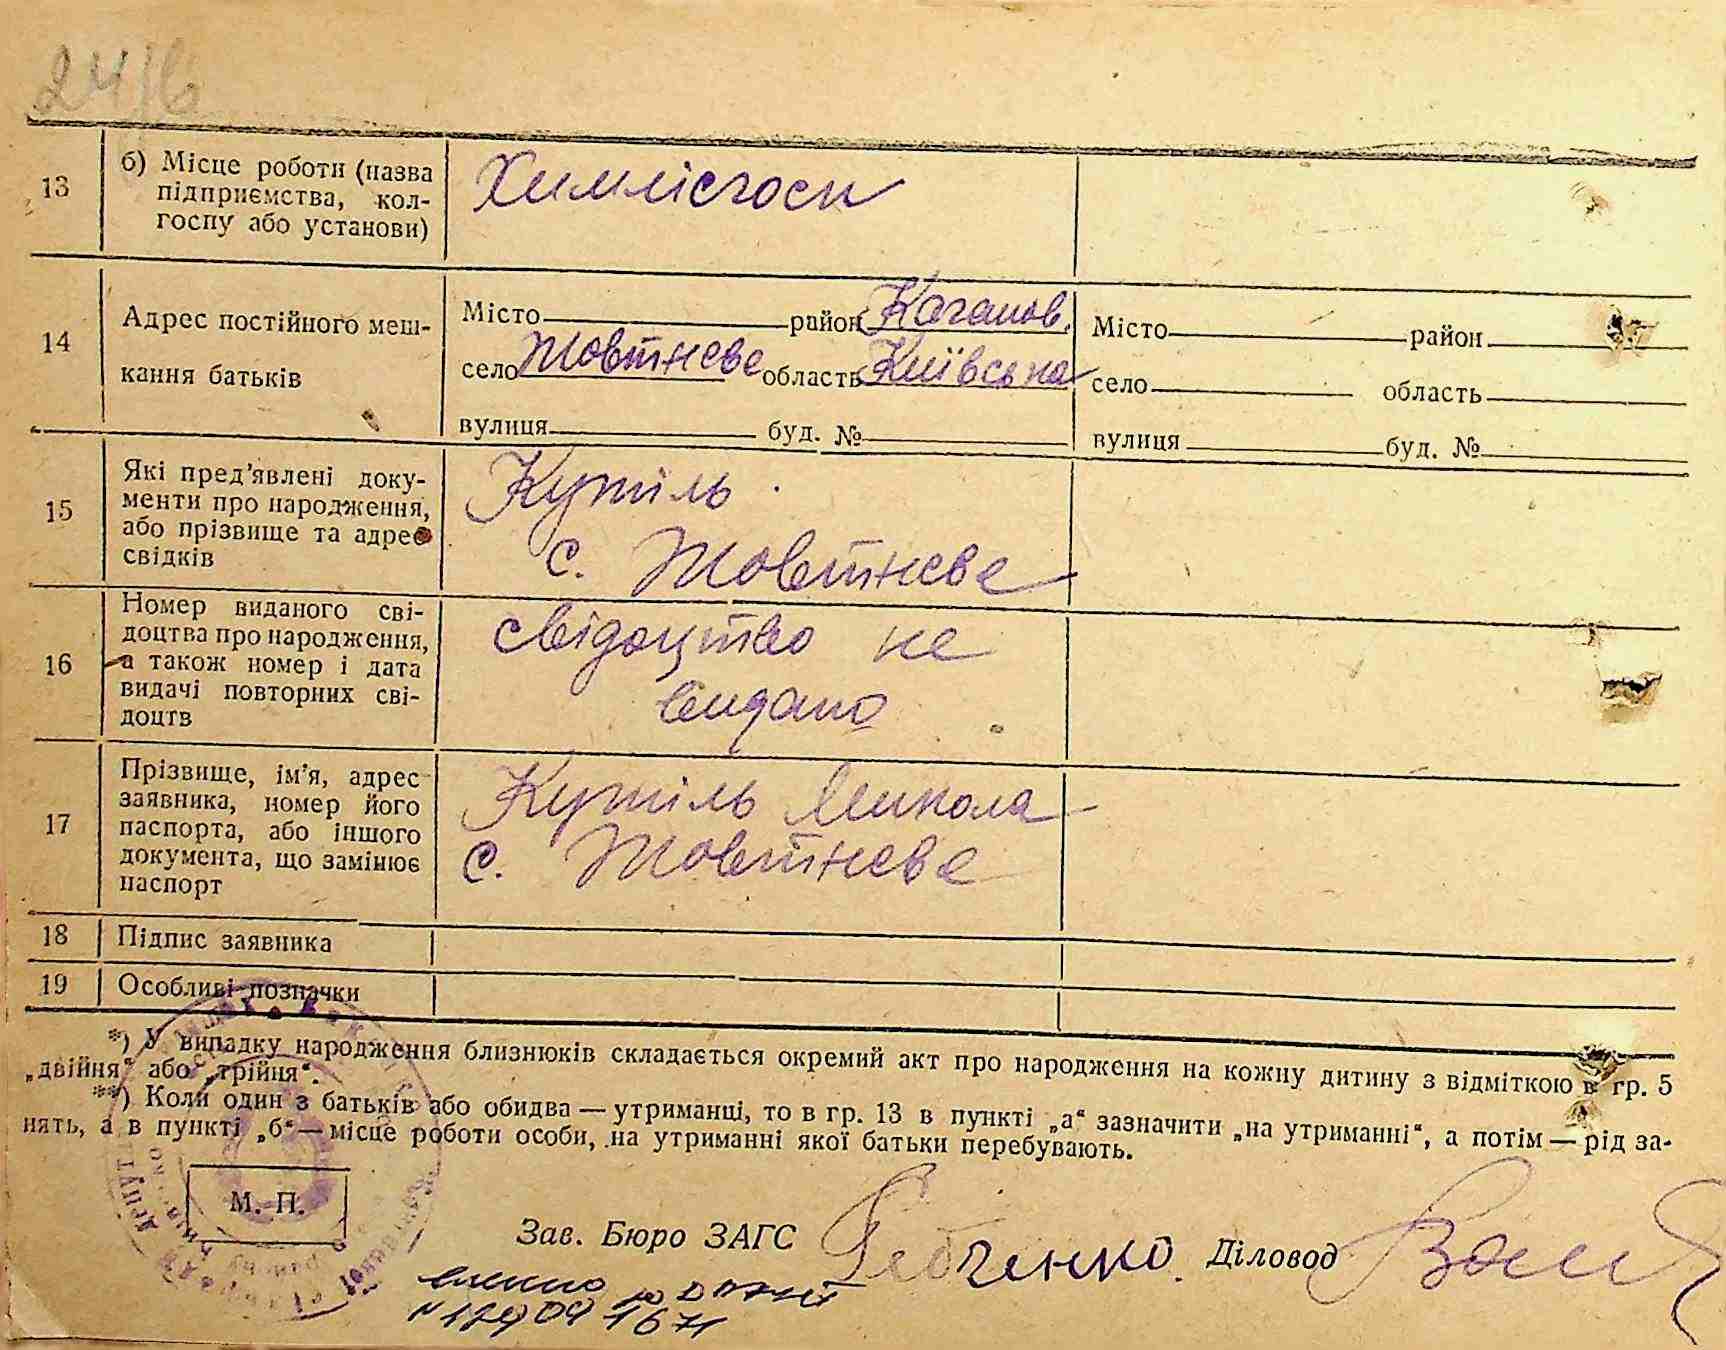 24/6
13 б) Місце роботи (назва Химлісгосп
підприємства, кол-
госпу або установи)
Місто район Каганов. Місто район
14 Адрес постійного меш-
село Жовтнєве область Київська село область
кання батьків
вулиця буд. № вулиця буд. №
15 Які пред'явлені доку- Кутіль
менти про народження,
або прізвище та адрес с. Жовтнєве
свідків
16 Номер виданого сві- свідоцтво не
доцтва про народження,
а також номер і дата
видачі повторних сві- видано
доцтв
17 Прізвище, ім'я, адрес Кутіль Микола
заявника, номер його
паспорта, або іншого с. Жовтнєве
документа, що замінює
паспорт
18 Підпис заявника
19 Особливі позначки
*) У випадку народження близнюків складається окремий акт про народження на кожну дитину з відміткою в гр. 5
„двійня“ або „трійня“.
**) Коли один з батьків або обидва — утриманці, то в гр. 13 в пункті „а“ зазначити „на утриманні“, а потім — рід за-
нять, а в пункті „б“ — місце роботи особи, на утриманні якої батьки перебувають.
М. П.
Зав. Бюро ЗАГС Діловод